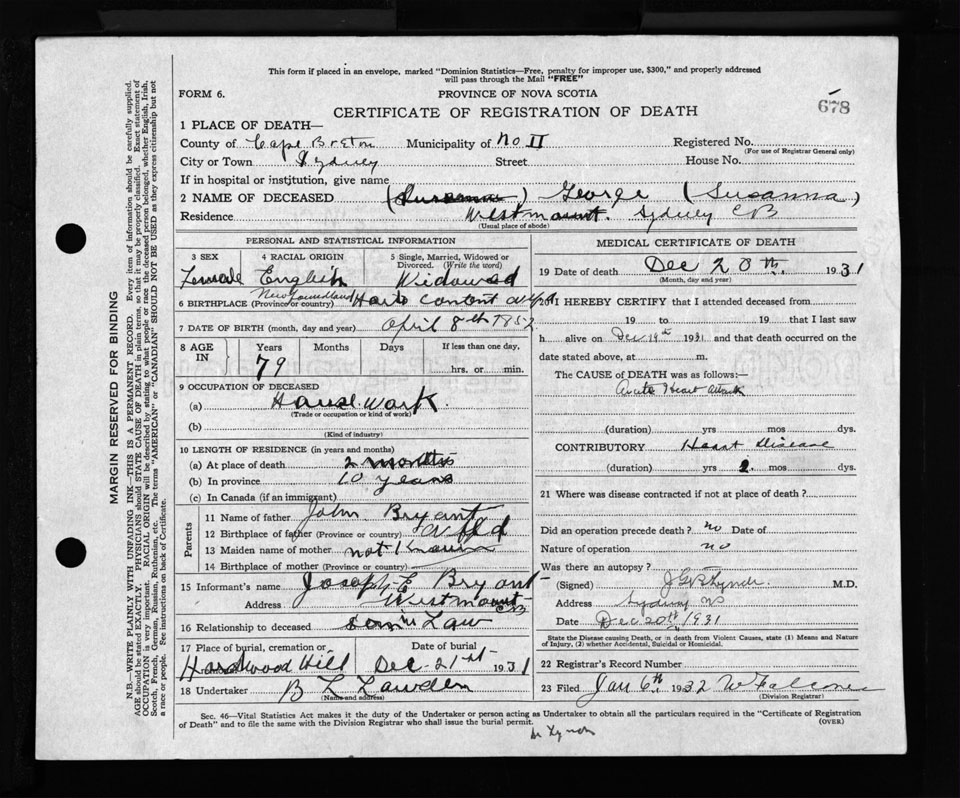 This form if placed in an envelope, marked "Dominion Statistics—Free, penalty for improper use, $300," and properly addressed
will pass through the Mail "FREE"
FORM 6.
PROVINCE OF NOVA SCOTIA
678
CERTIFICATE OF REGISTRATION OF DEATH
1 PLACE OF DEATH—
County of Cape Breton Municipality of No II Registered No.
(For use of Registrar General only)
City or Town Sydney Street House No.
If in hospital or institution, give name
2 NAME OF DECEASED George (Susanna)
Residence Westmount. Sydney CB
(Usual place of abode)
PERSONAL AND STATISTICAL INFORMATION
3 SEX 4 RACIAL ORIGIN 5 Single, Married, Widowed or
Divorced. (Write the word)
Female English Widowed
6 BIRTHPLACE (Province or country) Newfoundland Harts Content
7 DATE OF BIRTH (month, day and year) April 8th 1852
8 AGE IN Years Months Days If less than one day,
79 hrs. or min.
9 OCCUPATION OF DECEASED
(a) House work
(Trade or occupation or kind of work)
(b)
(Kind of industry)
10 LENGTH OF RESIDENCE (in years and months)
(a) At place of death 2 months
(b) In province 10 years
(c) In Canada (if an immigrant)
Parents
11 Name of father John Bryant
12 Birthplace of father (Province or country) Nfld
13 Maiden name of mother not Known
14 Birthplace of mother (Province or country)
15 Informant's name Joseph E Bryant
Address Westmount CB
16 Relationship to deceased son in Law
17 Place of burial, cremation or Date of burial
Hardwood Hill Dec 21st 1931
18 Undertaker
(Name and address)
MEDICAL CERTIFICATE OF DEATH
19 Date of death Dec 20th, 1931
(Month, day and year)
I HEREBY CERTIFY that I attended deceased from
19 to 19 that I last saw
h alive on Dec 19th 1931 and that death occurred on the
date stated above, at m.
The CAUSE of DEATH was as follows:—
Acute Heart Attack
(duration) yrs mos dys.
CONTRIBUTORY Heart Disease
(duration) yrs 2. mos dys.
21 Where was disease contracted if not at place of death?
Did an operation precede death? no Date of
Nature of operation no
Was there an autopsy?
(Signed) M.D.
Address Sydney NS
Date Dec 20th 1931
State the Disease causing Death, or in death from Violent Causes, state (1) Means and Nature
of Injury, (2) whether Accidental, Suicidal or Homicidal.
22 Registrar's Record Number
23 Filed Jan 6th. 1932
(Division Registrar)
Sec. 46—Vital Statistics Act makes it the duty of the Undertaker or person acting as Undertaker to obtain all the particulars required in the "Certificate of Registration
of Death" and to file the same with the Division Registrar who shall issue the burial permit.
(OVER)
Dr Lynch
MARGIN RESERVED FOR BINDING
N.B.—WRITE PLAINLY WITH UNFADING INK—THIS IS A PERMANENT RECORD. Every item of information should be carefully supplied.
AGE should be stated EXACTLY. PHYSICIANS should STATE CAUSE OF DEATH in plain terms, so that it may be properly classified. Exact statement of
OCCUPATION is very important. RACIAL ORIGIN will be described by stating to what people or race the deceased person belonged, whether English, Irish,
Scotch, French, German, Russian, Ruthenian, etc. The terms "AMERICAN" or "CANADIAN" SHOULD NOT BE USED as they express citizenship but not
a race or people. See instructions on back of Certificate.